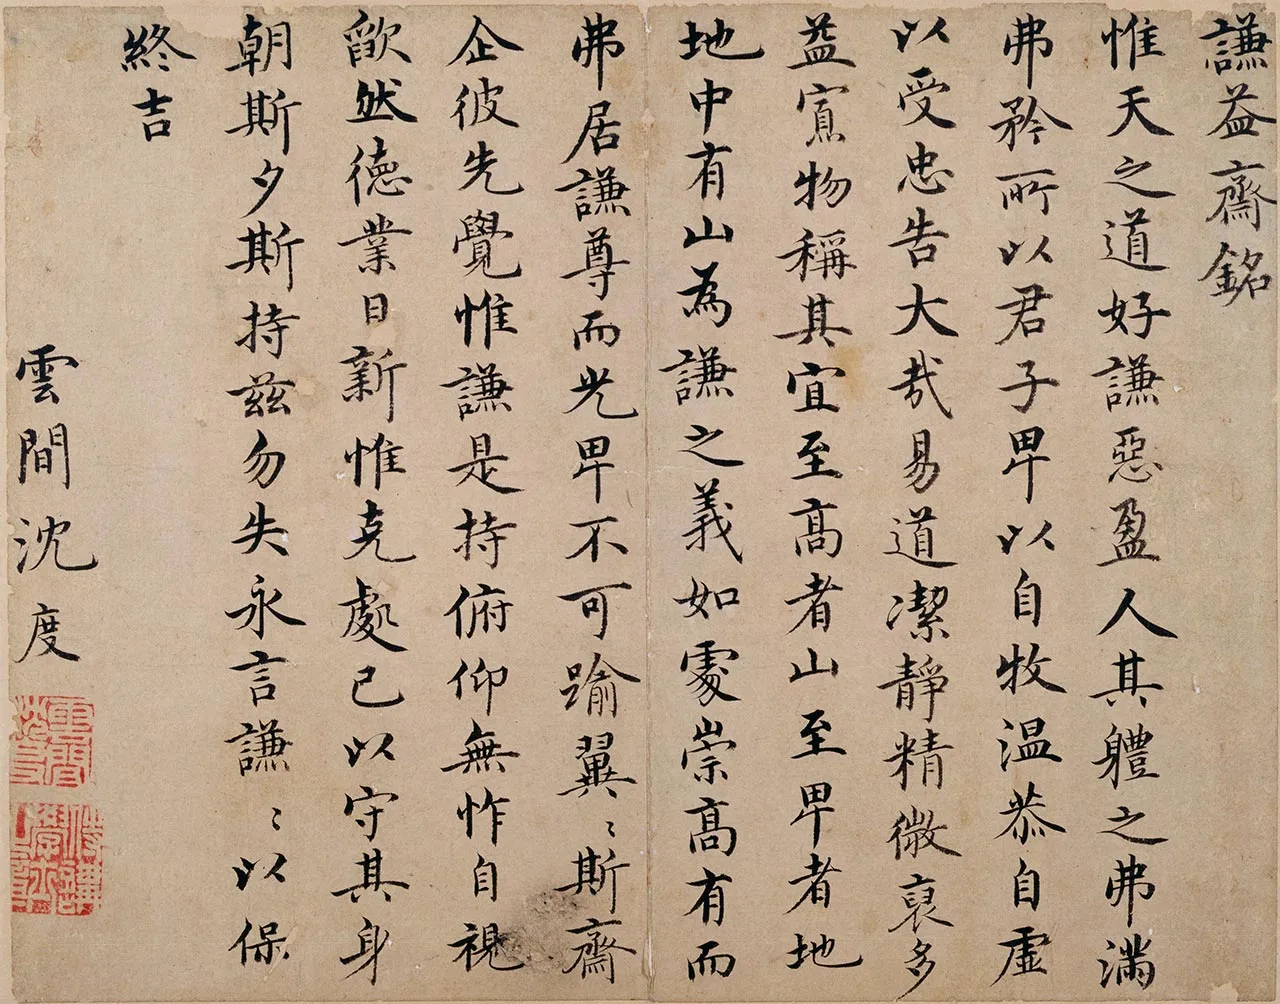 謙益齋銘
惟天之道好謙惡盈人其體之弗滿
弗矜所以君子卑以自牧温恭自虛
以受忠告大哉易道潔靜精微裒多
益寡物稱其宜至高者山至卑者地
地中有山為謙之義如處崇高有而
弗居謙尊而光卑不可踰翼〻斯齋
企彼先覺惟謙是持俯仰無怍自視
歉然德業日新惟克處已以守其身
朝斯夕斯持茲勿失永言謙〻以保
終吉
雲間沈度